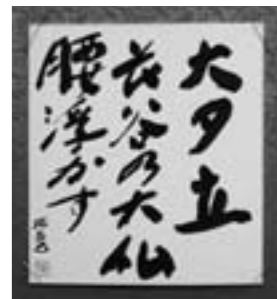 大夕立
長谷の大仏
腰浮かす